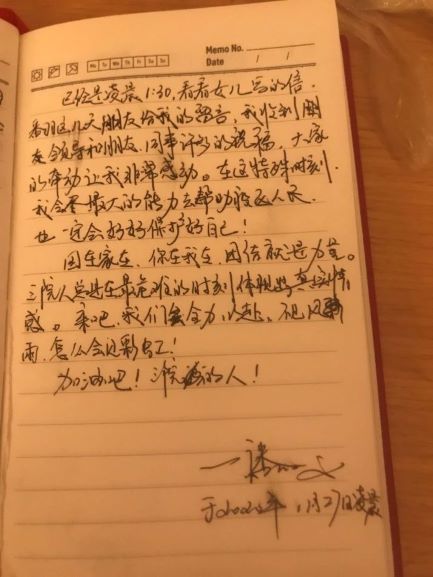 Memo No.
Mo Tu We Th Fr Sa Su
Date / /
已经是凌晨1:30,看看女儿写的信,
看这几天朋友给我的留言,我收到
友领导和朋友、同事许多的祝福,大家
的举动让我非常感动。在这特殊时刻,
我会尽最大的能力去帮助人民,
也一定会好好保护好自己!
国在家在,你在我在,团结就是力量。
三院人总是在最危难的时刻体现真情
感。来吧,我们全力以赴,不见风
雨,怎么会见彩虹!
加油吧!三院的人!
于2020年1月27日凌晨